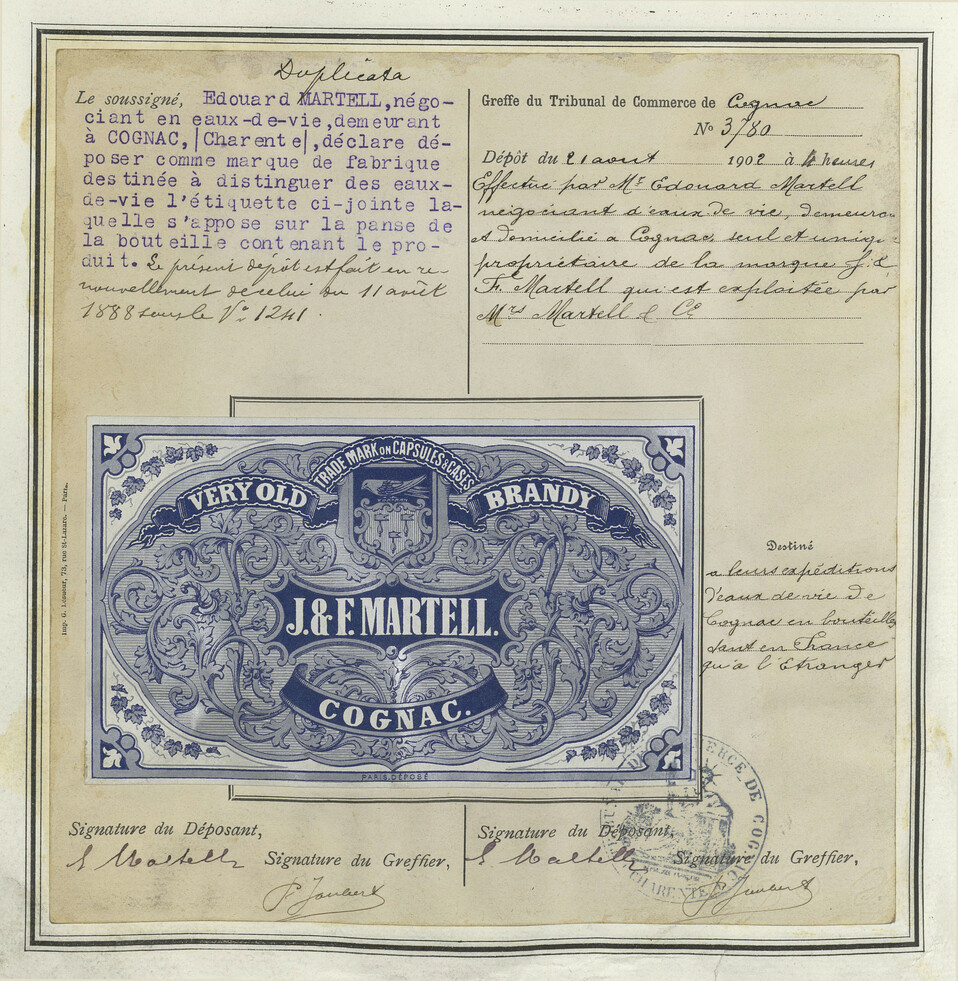 Duplicata
Le soussigné, Edouard MARTELL, négo-
ciant en eaux-de-vie, demeurant
à COGNAC, |Charente|, déclare dé-
poser comme marque de fabrique
destinée à distinguer des eaux-
de-vie l'étiquette ci-jointe la-
quelle s'appose sur la panse de
la bouteille contenant le pro-
duit. Le présent dépôt est fait en re-
nouvellement de celui du 11 août
1888 sous le N° 1241.
Greffe du Tribunal de Commerce de Cognac
N° 3780
Dépôt du 21 aout 1902 à 4 heures
Effectué par Mr Edouard Martell
négociant d'eaux de vie, demeurant
et domicilié a Cognac, seul et uniq.
propriétaire de la marque J. &
F. Martell qui est exploitée par
Mrs Martell & Ce
VERY OLD
TRADE MARK ON CAPSULES & CASES
BRANDY
J. & F. MARTELL.
COGNAC.
PARIS, DÉPOSÉ
Imp. G. Lesueur, 73, rue St-Lazare. — Paris.
Destiné
a leurs expéditions
d'eaux de vie de
Cognac en bouteilles
tant en France
qu'à l'Etranger
Signature du Déposant,
E Martell
Signature du Greffier,
P. Joubert
Signature du Déposant,
E Martell
Signature du Greffier,
P. Joubert
TRIBUNAL DE COMMERCE DE COGNAC
CHARENTE